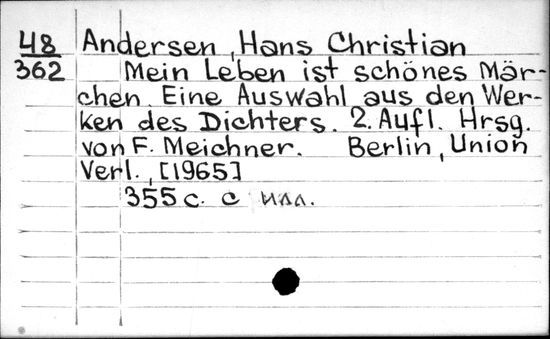 48 Andersen, Hans Christian
362 Mein Leben ist schönes Mär-
chen. Eine Auswahl aus den Wer-
ken des Dichters. 2. Aufl. Hrsg.
von F. Meichner. Berlin, Union
Verl., [1965]
355 с. с илл.